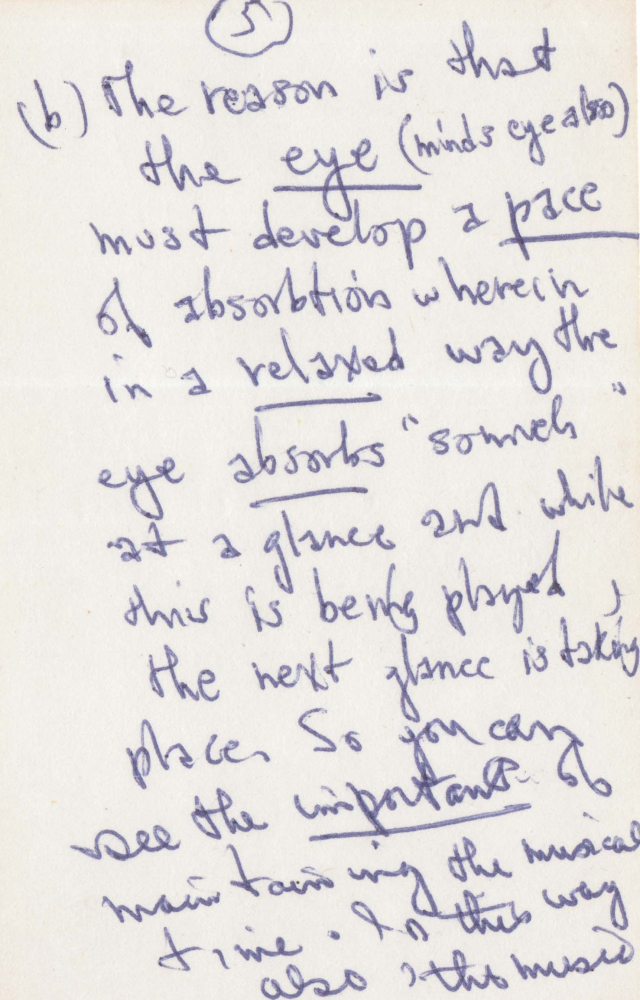 5
(b) The reason is that
the eye (minds eye also)
must develop a pace
of absorbtion wherein
in a relaxed way the
eye absorbs "somuch"
at a glance and while
this is being played,
the next glance is taking
place. So you can
see the important of
maintaining the musical
time. In this way
also, the music